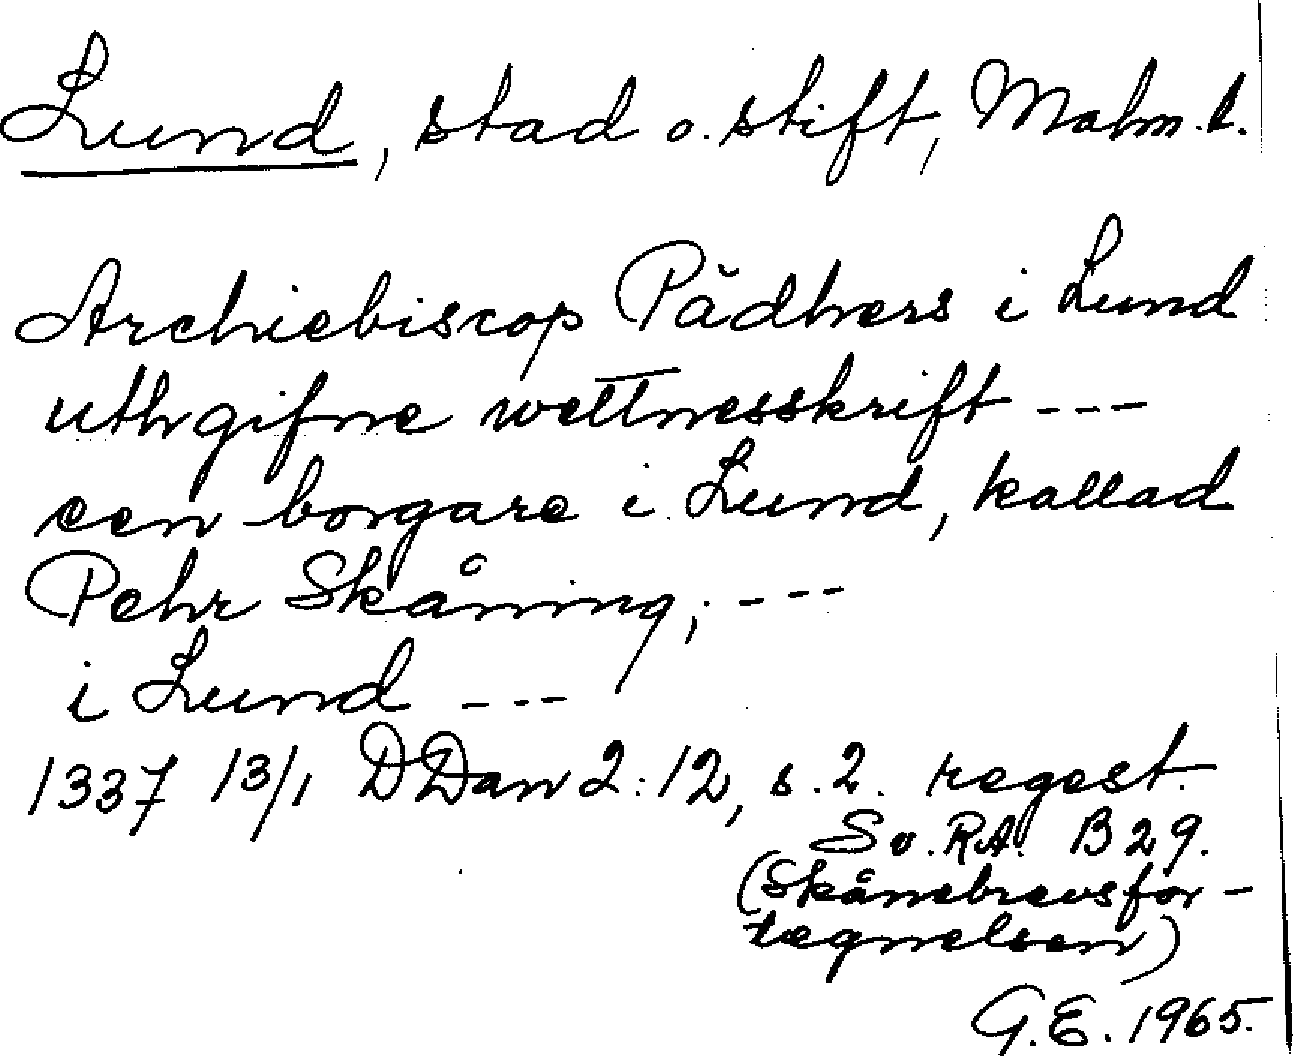 Lund, stad o. stift, Malm. l.
Archiebiscop Pädhers i Lund
uthgifne wettnesskrift ---
een borgare i Lund, kallad
Pehr Skåning, ---
i Lund ---
1337 13/1 DDan 2:12, s. 2. regest.
Sv. RA. B 29.
(Skånebrevsfor-
tegnelsen)
G.E. 1965.